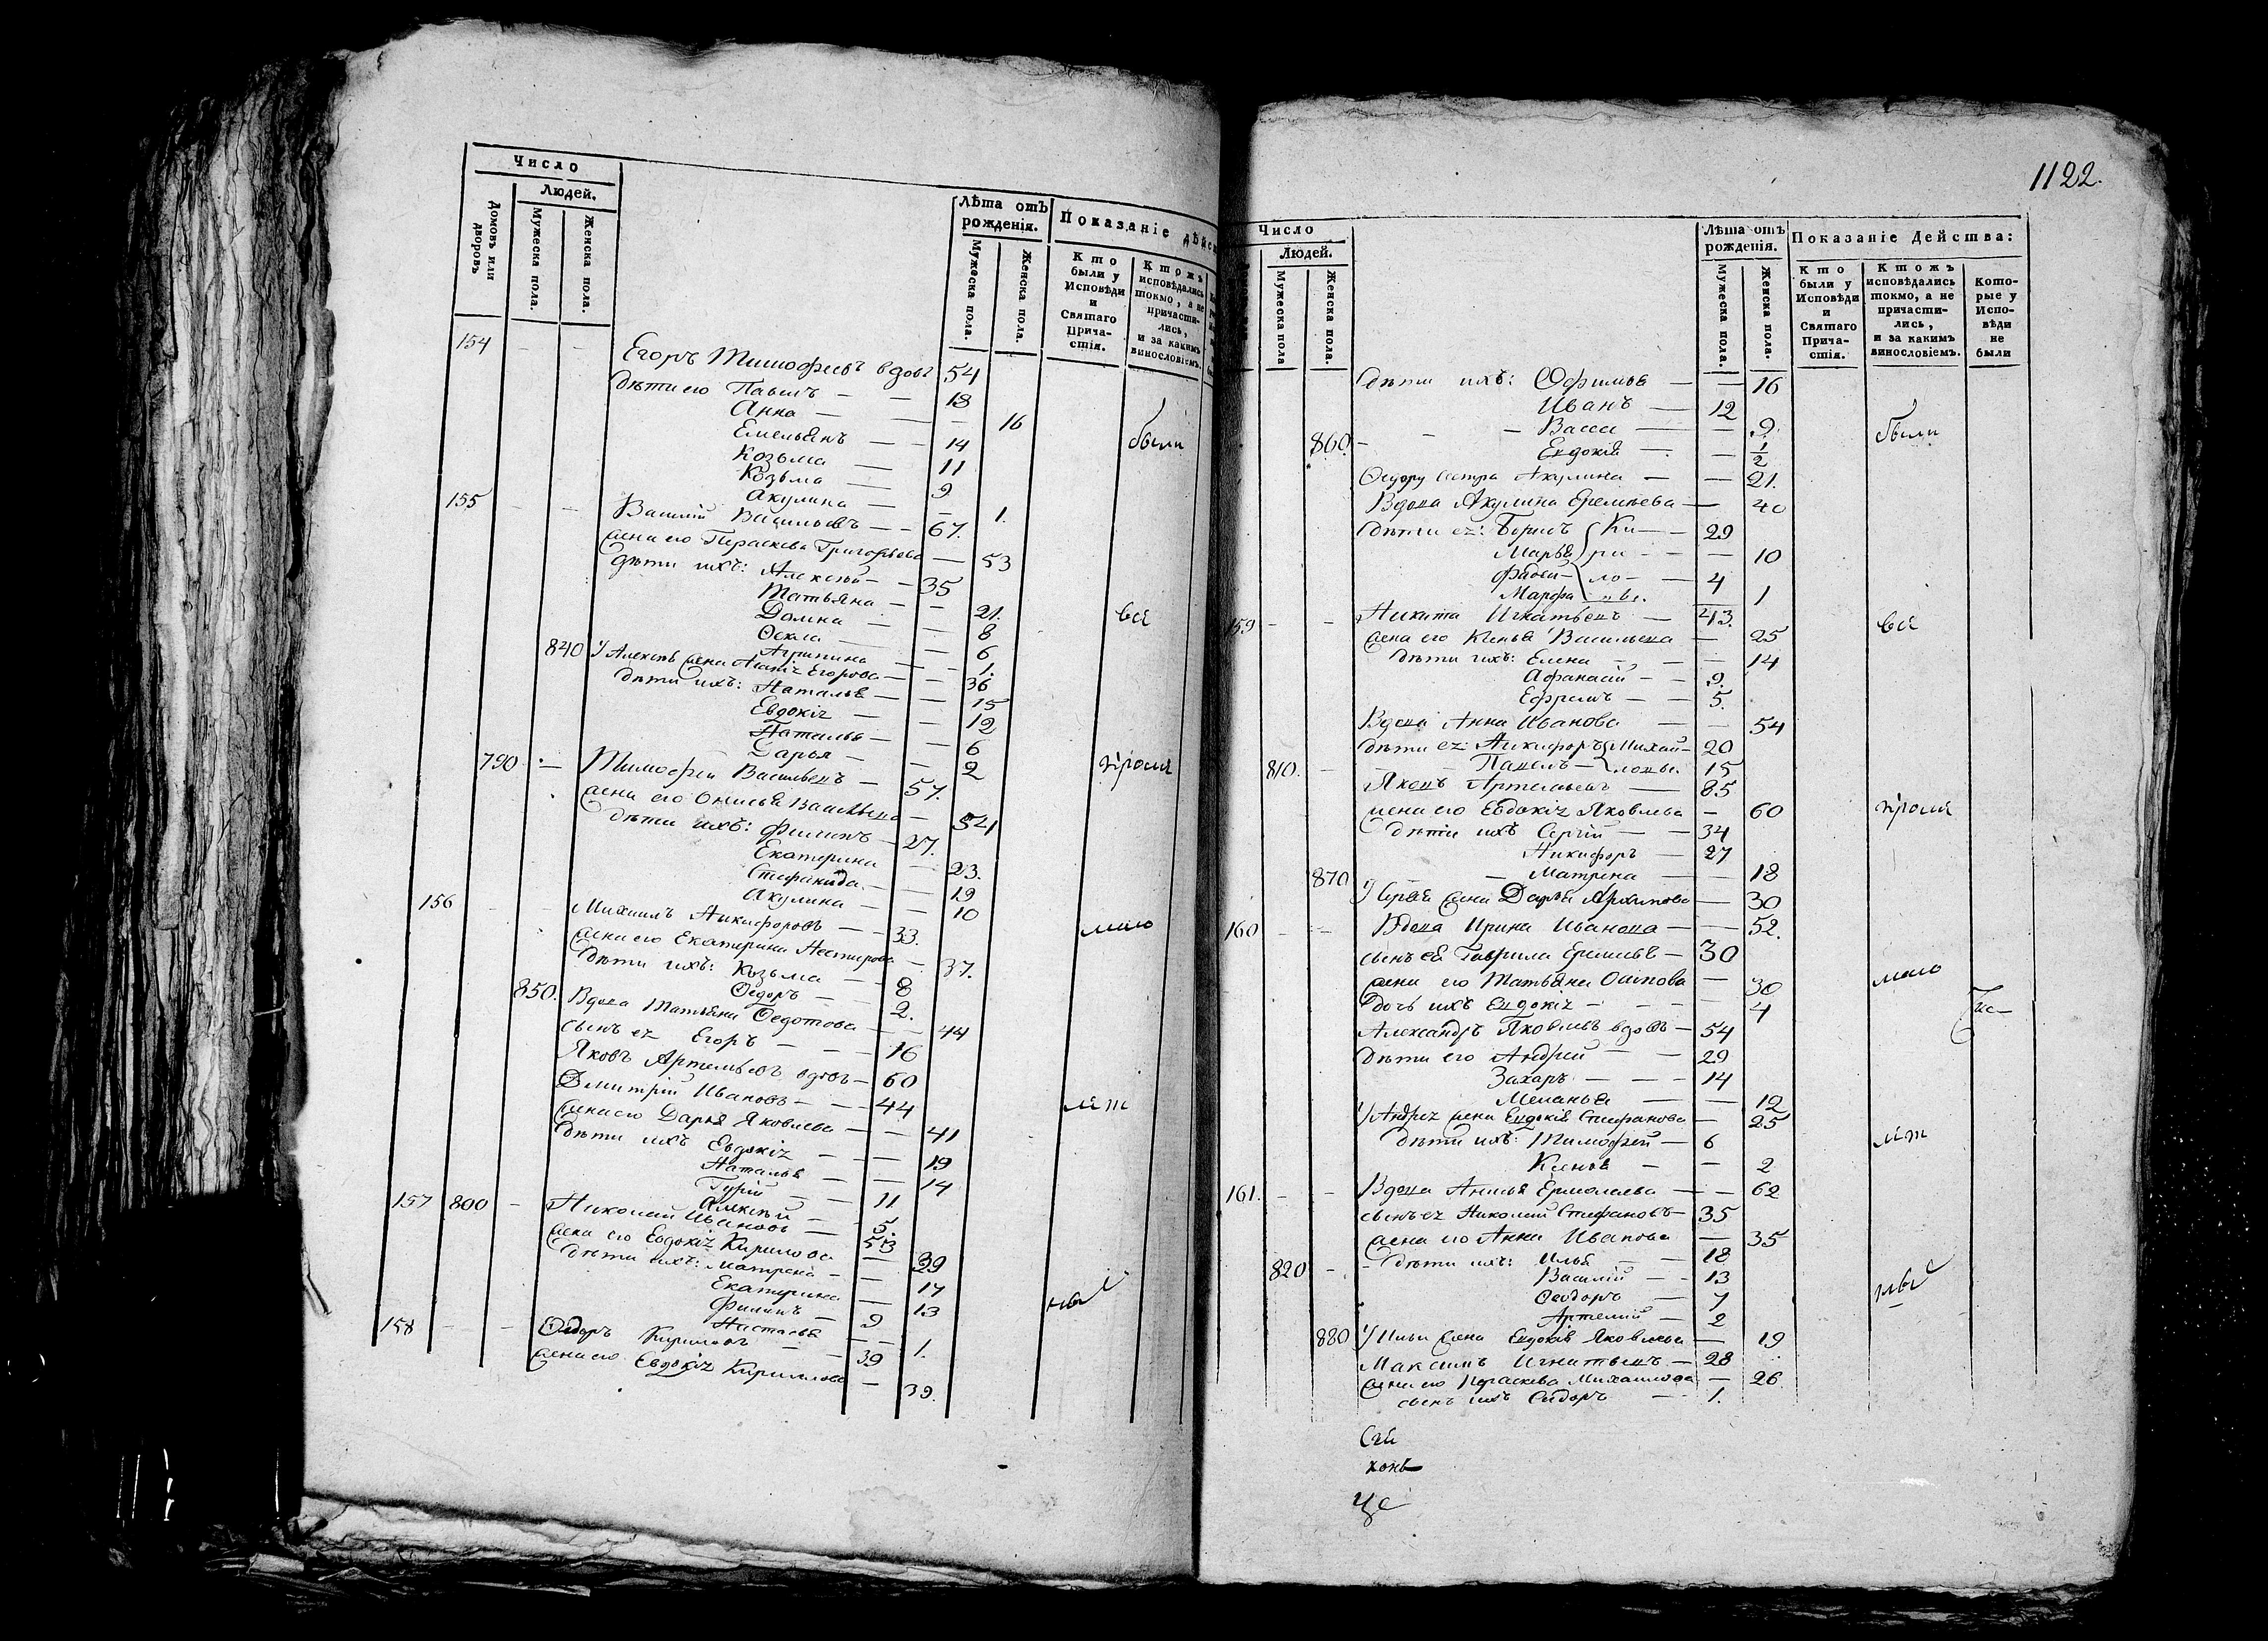 Число
Людей.
Домовъ или дворовъ
Мужеска пола.
Женска пола.
Лѣта отъ рожденія.
Мужеска пола.
Женска пола.
Показаніе дѣйс
Кто были у Исповѣди и Святаго Прича-стія.
Ктожъ исповѣдались токмо, а не причасти-лись, и за какимъ винословіемъ.
154 – – Егоръ Тимофеевъ вдовъ 54
дѣти его Павелъ – – 18
Анна – – 16
Емельянъ – – 14
Козьма – 11
Козьма – 9
Акулина – – 1.
были
155 – – Василій Васильевъ – – 67.
жена его Параскева Григорьева – 53
дѣти ихъ: Алексѣй – – 35
Татьяна – – 21.
Домна – – 8
Фекла – – 6
Агрипина – – 1.
всѣ
840 У Алексѣя жена Егорова – – 36
дѣти ихъ: Наталья – – 15
Евдокія – – 12
Наталья – – 6
Дарья – – 2
790 – Тимофей Васильевъ – 57.
кромѣ
жена его Онисья Васильева – 54
дѣти ихъ: Филипъ – 27.
Екатерина – 23.
Стефанида – – 19
Акулина – – 10
156 – – Михаилъ Никифоровъ – – 33.
мало
жена его Екатерина Нестерова – 37.
дѣти ихъ: Козьма – – 8
Федоръ – – 2.
850. Вдова Татьяна Федотова – – 44
сынъ ея Егоръ – – – 16
Яковъ Артемьевъ вдовъ – 60
Дмитрій Ивановъ – – 44
лѣт
жена его Дарья Яковлева – – 41
дѣти ихъ Евдокія – – 19
Наталья – – 14
Гурій – – 11
Алексѣй – – 5.
157 800 – Николай Ивановъ – 53
жена его Евдокія Кирилова – 39
дѣти ихъ: Матрена – – 17
Екатерина – 13
Филипъ – 9
Настасья – – 1.
158 – – Федоръ Кириловъ – – 39
жена его Евдокія Кирилова – 39.
1122.
Число
Людей.
Мужеска пола
Женска пола.
Лѣта отъ рожденія.
Мужеска пола.
Женска пола.
Показаніе Действа:
Кто были у Исповѣди и Святаго Прича-стія.
Ктожъ исповѣдались токмо, а не причасти-лись, и за какимъ винословіемъ.
Кото-рые у Испо-вѣди не были
дѣти ихъ: Офимья – – 16
Иванъ – 12
– – Васса – – 9.
были
860. – Евдокія – – 1/2
Федору сестра Акулина – – 21.
Вдова Акулина Еремѣева – 40
дѣти ея: Борисъ Ки – 29
Марья ри – – 10
Фадей – ло – 4
Марфа вы. 1
159 – – Никита Игнатьевъ – 43.
всѣ
жена его Ксенья Васильева – 25
дѣти ихъ: Елена – – 14
Афанасій – – 9.
Ефремъ – – 5.
Вдова Анна Иванова – – 54
дѣти ея: Никифоръ Михай – 20
810. – – Павелъ – ловы. 15
Яковъ Артемьевъ – 85
жена его Евдокія Яковлева – 60
кромѣ
дѣти ихъ Сергій – – 34
Никифоръ – 27
870 – Матрена – – 18
У Сергѣя жена Дарья Архипова – 30
160 – – Вдова Ирина Иванова – – 52.
сынъ ея Гаврила Еремѣевъ – 30
жена его Татьяна Осипова – 30
мало
дочь ихъ Евдокія – – – 4
Александръ Яковлевъ вдовъ – 54
дѣти его Андрей – – 29
Захаръ – – – 14
Меланья – – 12
У Андрея жена Евдокія Стефанова – 25
дѣти ихъ: Тимофей – 6
лѣт
Ксенья – – 2
161. – – Вдова Анисья Ермолаева – – 62
сынъ ея Николай Стефановъ – 35
жена его Анна Иванова – 35
820 – – дѣти ихъ: Илья – – 18
Василій – – 13
Феодоръ – 7
Артемій – 2
880 У Ильи жена Евдокія Яковлева – 19
Максимъ Игнатьевъ – 28
жена его Параскева Михаилова – 26
сынъ ихъ Сидоръ – – 1.